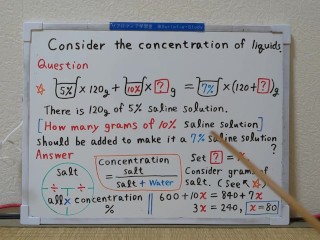 Consider the concentration of liquids.
Question
☆ 5% × 120g + 10% × ? g = 7% × (120+?)g
There is 120g of 5% saline solution.
[How many grams of 10% saline solution]
should be added to make it a 7% saline solution
?
Answer
Concentration = salt / salt + water
Set ? = x
Consider grams of
salt. (See ☆)
salt
÷ ÷
all × concentration
%
600 + 10x = 840 + 7x
3x = 240, x = 80